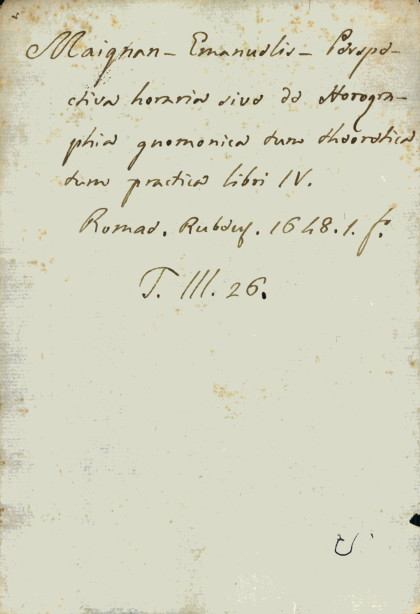 Maignan - Emanuelis - Perspe-
ctiva horaria sive de Horogra-
phia gnomonica tum theoretica
tum practica libri IV.
Romae. Rubeus. 1648. 1. f.
T. III. 26.